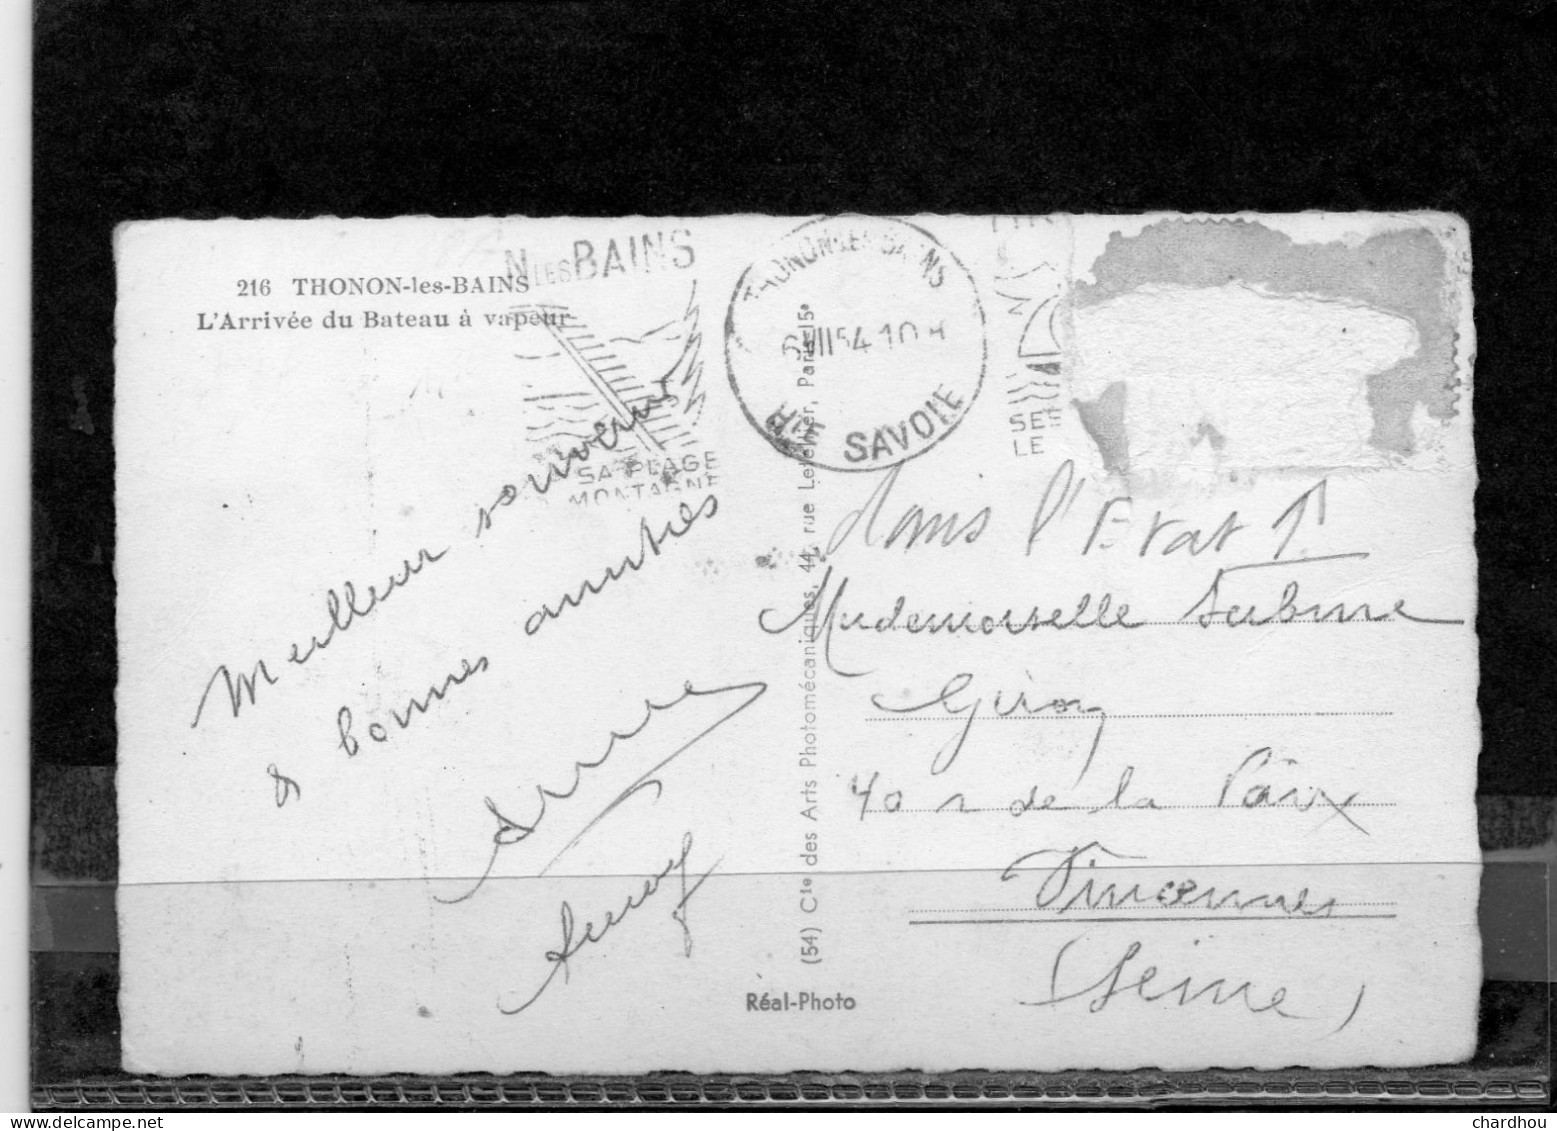 216 THONON-les-BAINS
L'Arrivée du Bateau à vapeur
N LES BAINS
SA PLAGE
MONTAGNE
THONON-LES-BAINS
VII 54 10 H
HTE SAVOIE
SE
LE
Meilleur souvenir
& bonnes amitiés
dans l'Etat !
Mademoiselle Sabine
Giron
40 r de la Paix
Vincennes
(Seine)
(54) Cie des Arts Photomécaniques, 44, rue Letellier, Paris-15e
Réal-Photo
chardhou